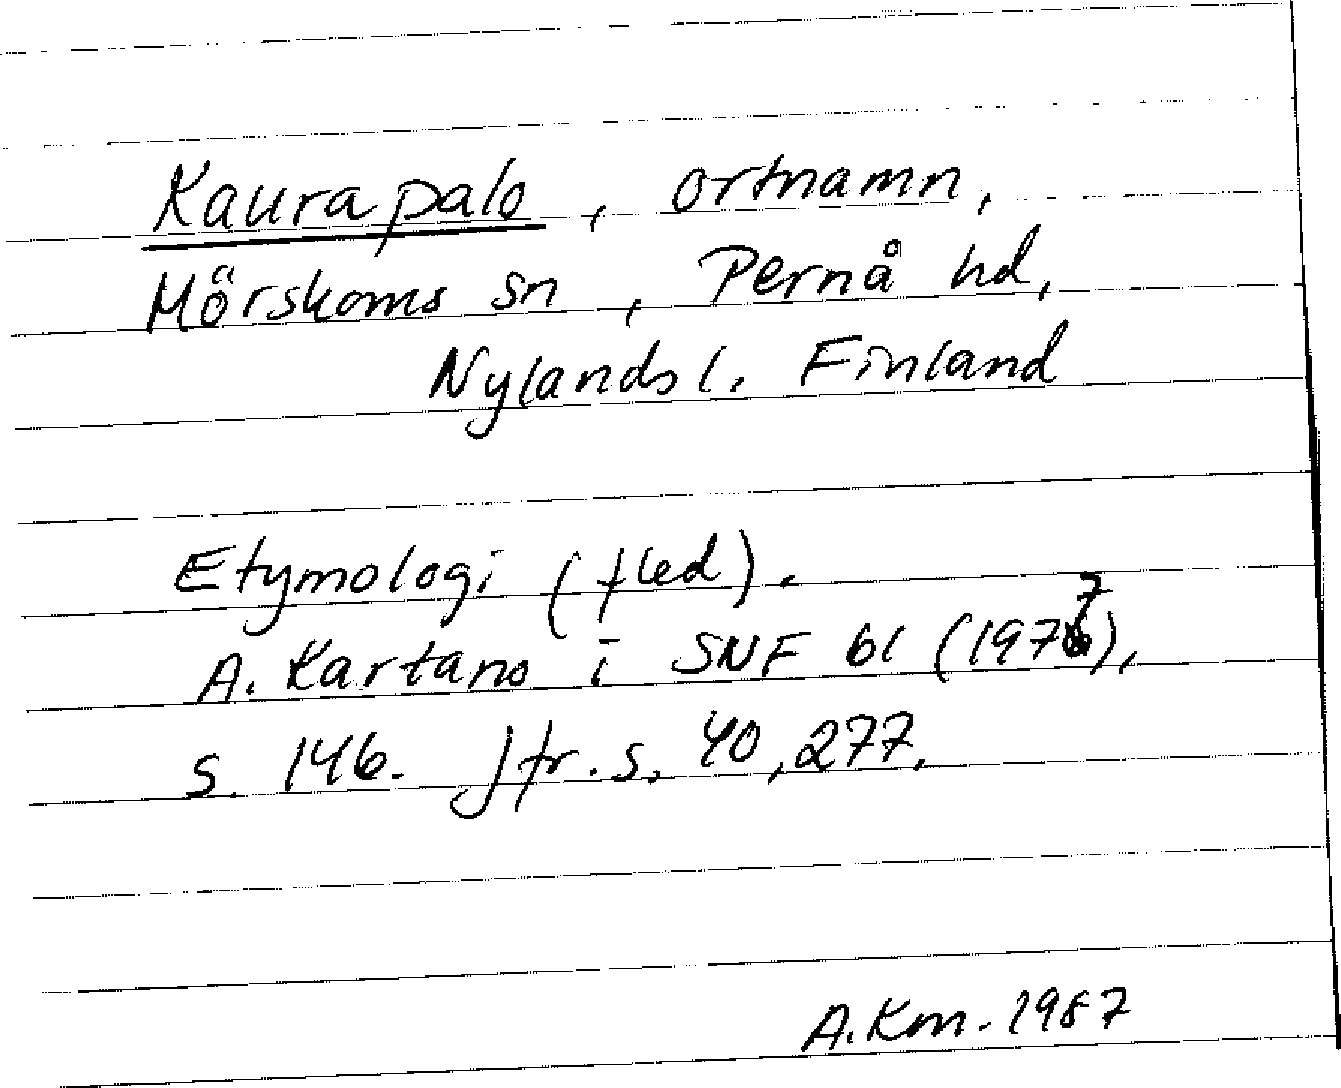 Kaurapalo, ortnamn,
Mörskoms sn, Pernå hd,
Nylands l. Finland
Etymologi (fled).
A. Kartano i SNF 61 (1977),
s. 146. Jfr. s. 40, 277.
A. Km. 1987